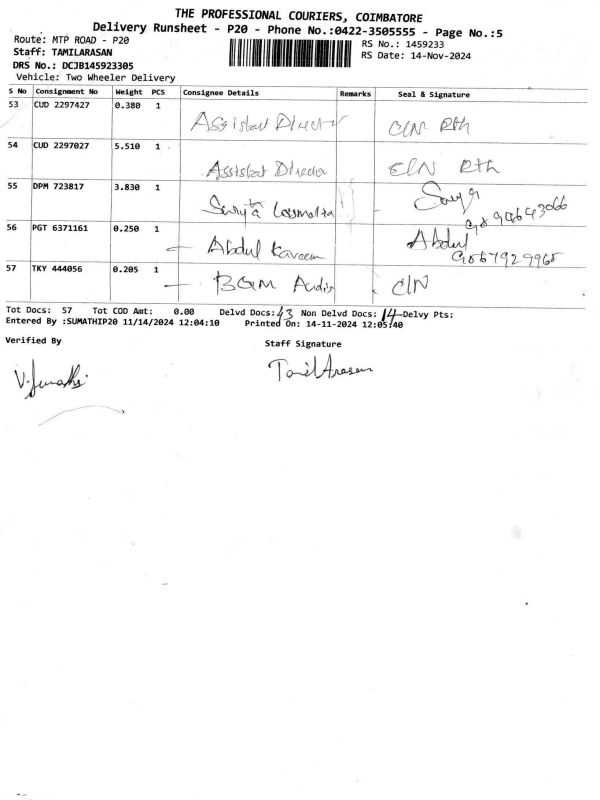 THE PROFESSIONAL COURIERS, COIMBATORE
Delivery Runsheet - P20 - Phone No.:0422-3505555 - Page No.:5
Route: MTP ROAD - P20 RS No.: 1459233
Staff: TAMILARASAN RS Date: 14-Nov-2024
DRS No.: DCJB145923305
Vehicle: Two Wheeler Delivery
S No Consignment No Weight PCS Consignee Details Remarks Seal & Signature
53 CUD 2297427 0.380 1
Assistat Director
54 CUD 2297027 5.510 1
Assistat Director
55 DPM 723817 3.830 1
Surya
56 PGT 6371161 0.250 1
Abdul Kareem Abdul
57 TKY 444056 0.205 1
BGM
Tot Docs: 57 Tot COD Amt: 0.00 Delvd Docs: 43 Non Delvd Docs: 14 Delvy Pts:
Entered By :SUMATHIP20 11/14/2024 12:04:10 Printed On: 14-11-2024 12:05:40
Verified By Staff Signature
V. Sumathi TamilArasan